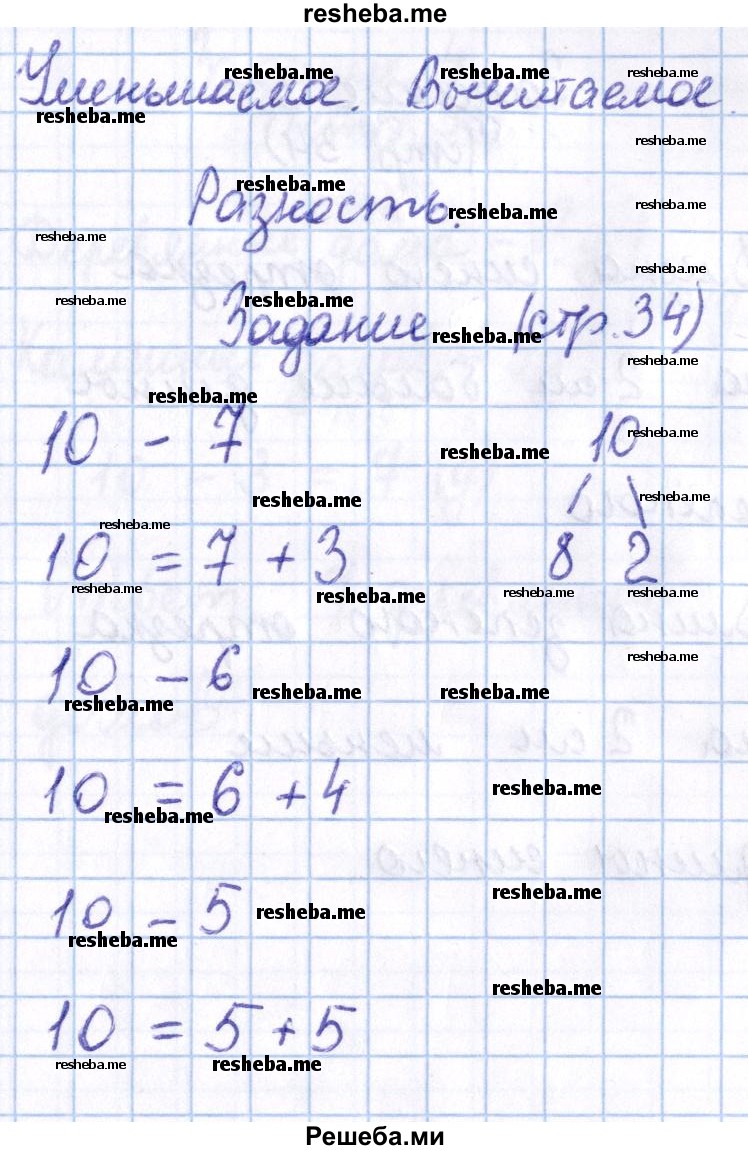 resheba.me
Уменьшаемое. Вычитаемое.
Разность.
Задание (стр. 34)
10 - 7
10
10 = 7 + 3
8 2
10 - 6
10 = 6 + 4
10 - 5
10 = 5 + 5
Решеба.ми